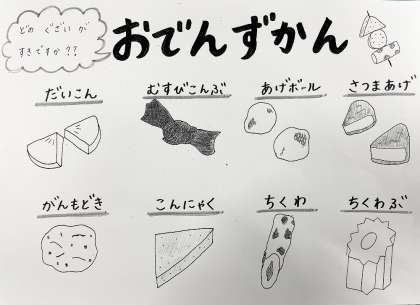 どの ぐざい が
すきですか??
おでんずかん
だいこん
むすびこんぶ
あげボール
さつまあげ
がんもどき
こんにゃく
ちくわ
ちくわぶ